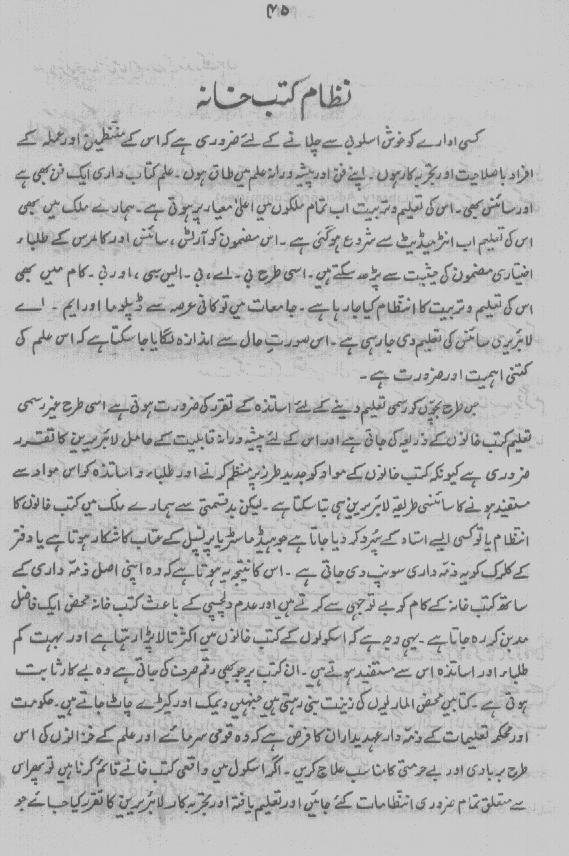 ۴۵
نظام کتب خانہ
کسی ادارے کو خوش اسلوبی سے چلانے کے لئے ضروری ہے کہ اس کے منتظمین اور عملہ کے
افراد باصلاحیت اور تجربہ کار ہوں۔ اپنے فن اور پیشہ ورانہ علم میں طاق ہوں۔ علم کتاب داری ایک فن بھی ہے
اور سائنس بھی۔ اس کی تعلیم و تربیت اب تمام ملکوں میں اعلیٰ معیار پر ہوتی ہے۔ ہمارے ملک میں بھی
اس کی تعلیم اب انٹرمیڈیٹ سے شروع ہو گئی ہے۔ اس مضمون کو آرٹس، سائنس اور کامرس کے طلباء
اختیاری مضمون کی حیثیت سے پڑھ سکتے ہیں۔ اسی طرح بی۔ اے، بی۔ ایس سی، اور بی۔ کام میں بھی
اس کی تعلیم و تربیت کا انتظام کیا جا رہا ہے۔ جامعات میں تو کافی عرصہ سے ڈپلوما اور ایم۔ اے
لائبریری سائنس کی تعلیم دی جا رہی ہے۔ اس صورتِ حال سے اندازہ لگایا جا سکتا ہے کہ اس علم کی
کتنی اہمیت اور ضرورت ہے۔
جس طرح بچوں کو رسمی تعلیم دینے کے لئے اساتذہ کے تقرر کی ضرورت ہوتی ہے اسی طرح غیر رسمی
تعلیم کتب خانوں کے ذریعہ کی جاتی ہے اور اس کے لئے پیشہ ورانہ قابلیت کے حامل لائبریرین کا تقرر
ضروری ہے کیونکہ کتب خانوں کے مواد کو جدید طرز پر منظم کرنے اور طلباء و اساتذہ کو اس مواد سے
مستفید ہونے کا سائنسی طریقہ لائبریرین ہی بتا سکتا ہے۔ لیکن بدقسمتی سے ہمارے ملک میں کتب خانوں کا
انتظام یا تو کسی ایسے استاد کے سپرد کر دیا جاتا ہے جو ہیڈ ماسٹر یا پرنسپل کے عتاب کا شکار ہوتا ہے یا دفتر
کے کلرک کو یہ ذمہ داری سونپ دی جاتی ہے۔ اس کا نتیجہ یہ ہوتا ہے کہ وہ اپنی اصل ذمہ داری کے
ساتھ کتب خانہ کے کام کو بے توجہی سے کرتے ہیں اور عدم دلچسپی کے باعث کتب خانہ محض ایک فاضل
مد بن کر رہ جاتا ہے۔ یہی وجہ ہے کہ اسکولوں کے کتب خانوں میں اکثر تالا پڑا رہتا ہے اور بہت کم
طلباء اور اساتذہ اس سے مستفید ہوتے ہیں۔ ان کتب پر جو کچھ بھی رقم صرف کی جاتی ہے وہ بے کار ثابت
ہوتی ہے۔ کتابیں محض الماریوں کی زینت بنی رہتی ہیں جنہیں دیمک اور کیڑے چاٹ جاتے ہیں۔ حکومت
اور محکمہ تعلیمات کے ذمہ دار عہدیداران کا فرض ہے کہ وہ قومی سرمائے اور علم کے خزانوں کی اس
طرح بربادی اور بے حرمتی کا مناسب علاج کریں۔ اگر اسکول میں واقعی کتب خانے قائم کرنا ہیں تو پھر اس
سے متعلق تمام ضروری انتظامات کئے جائیں اور تعلیم یافتہ اور تجربہ کار لائبریرین کا تقرر کیا جائے جو